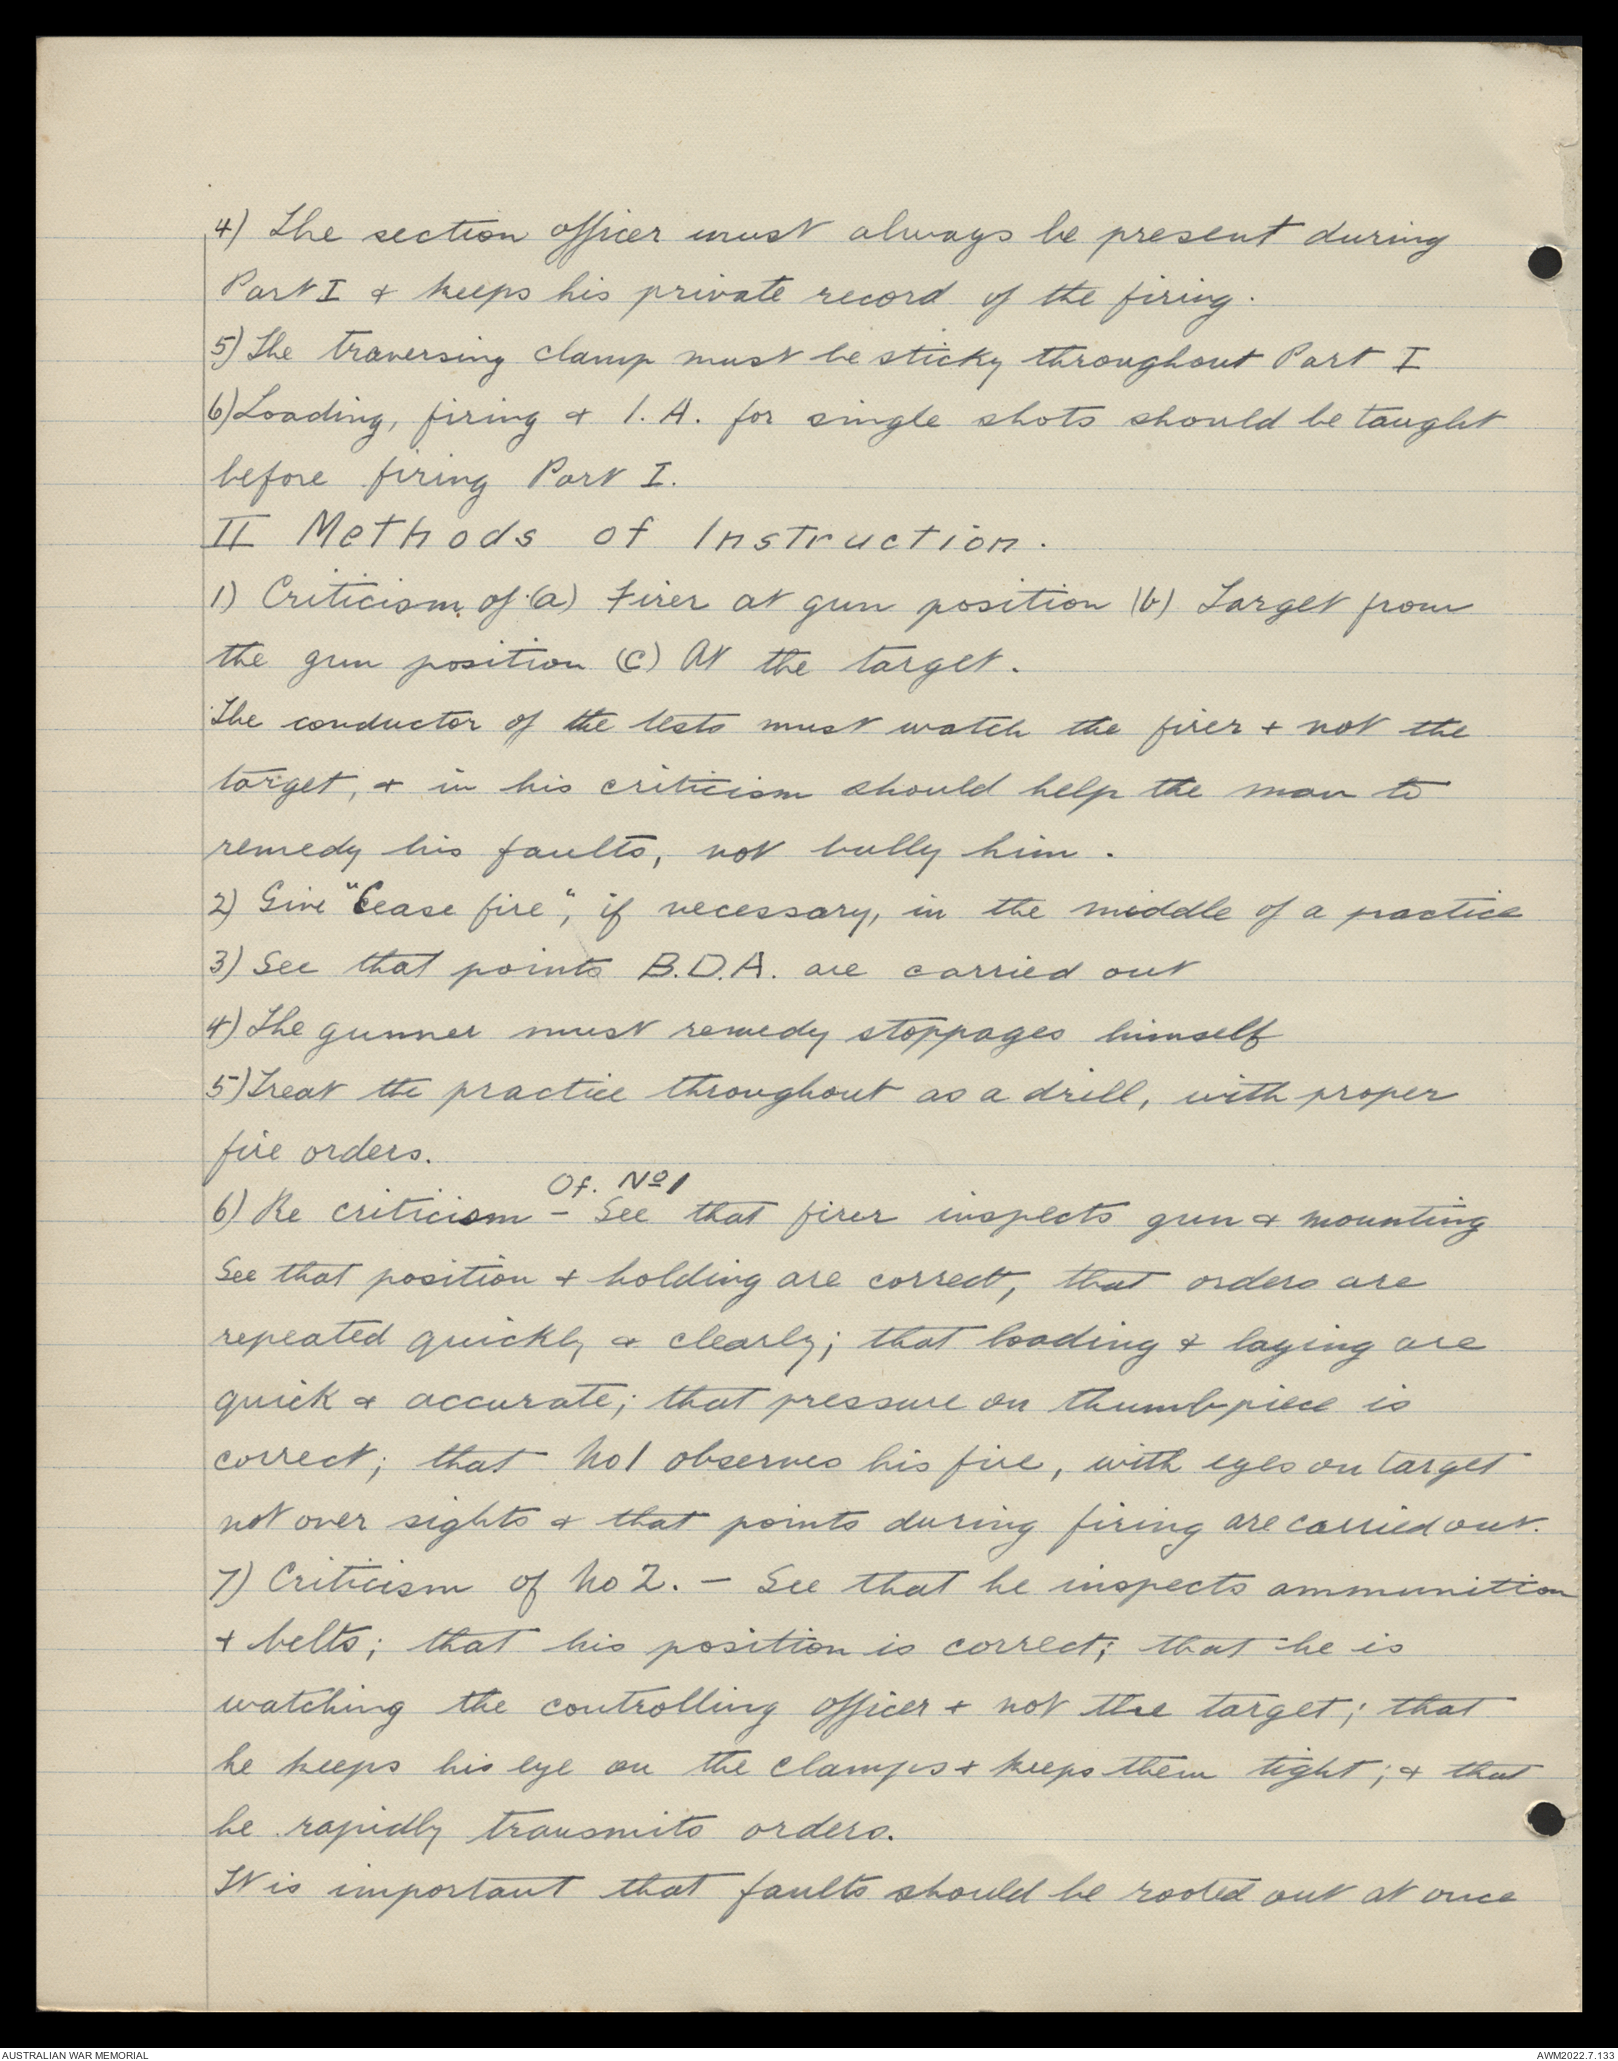 4) The section officer must always be present during
Part I & keeps his private record of the firing.
5) The traversing clamp must be sticky throughout Part I
6) Loading, firing & I.A. for single shots should be taught
before firing Part I.
II Methods of Instruction.
1) Criticism of (a) Firer at gun position (b) Target from
the gun position (c) At the target.
The conductor of the tests must watch the firer + not the
target, & in his criticism should help the man to
remedy his faults, not bully him.
2) Give "Cease fire", if necessary, in the middle of a practice
3) See that points B.D.A. are carried out
4) The gunner must remedy stoppages himself
5) Treat the practice throughout as a drill, with proper
fire orders.
Of. No 1
6) Re criticism - See that firer inspects gun & mounting
See that position + holding are correct, that orders are
repeated quickly & clearly; that loading & laying are
quick & accurate; that pressure on thumbpiece is
correct; that No 1 observes his fire, with eyes on target
not over sights & that points during firing are carried out.
7) Criticism of No 2. - See that he inspects ammunition
+ belts; that his position is correct; that he is
watching the controlling officer + not the target; that
he keeps his eye on the clamps + keeps them tight; & that
he rapidly transmits orders.
It is important that faults should be rooted out at once
AUSTRALIAN WAR MEMORIAL
AWM2022.7.133